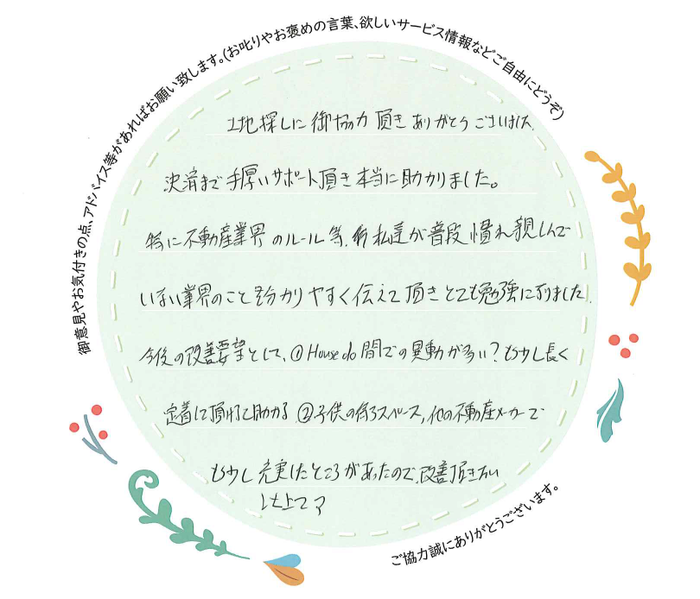 御意見やお気付きの点、アドバイス等があればお願い致します。(お叱りやお褒めの言葉、欲しいサービス情報などご自由にどうぞ)
土地探しに御協力頂きありがとうございました。
決済まで手厚いサポート頂き本当に助かりました。
特に不動産業界のルール等、私達が普段慣れ親しんで
いない業界のことを分かりやすく伝えて頂きとても勉強になりました。
今後の改善要望として、①House do 間での異動が多い?もう少し長く
定着して頂けると助かる ②子供の待つスペース、他の不動産メーカーで
もう少し充実したところがあったので、改善頂きたい
と思って
ご協力誠にありがとうございます。